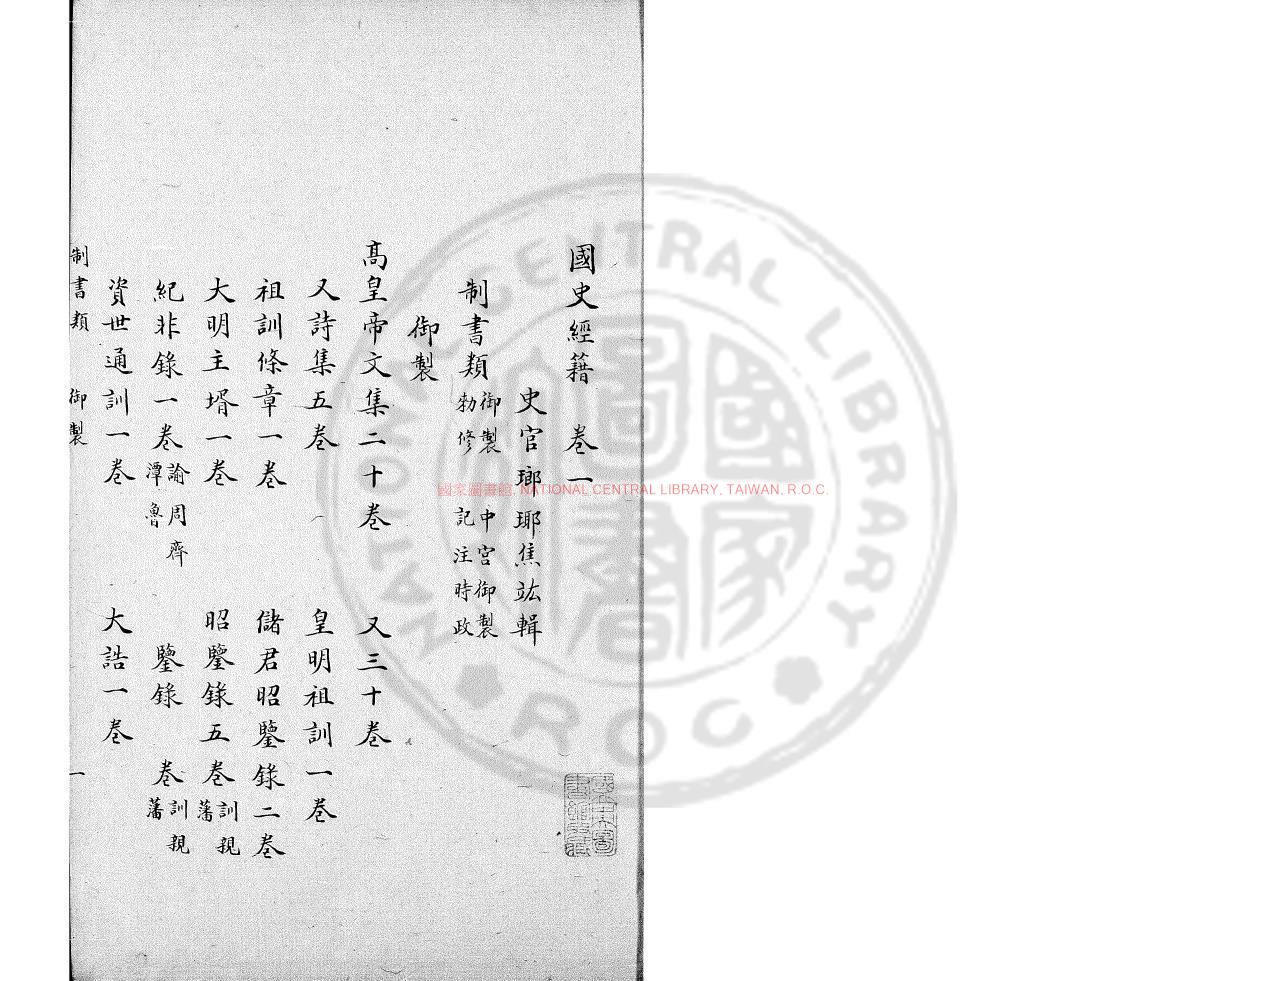 國史經籍　卷一
史官瑯琊焦竑輯
制書類 御製 中宮御製
勑修 記注時政
御製
高皇帝文集二十卷　又三十卷
又詩集五卷　皇明祖訓一卷
祖訓條章一卷　儲君昭鑒錄二卷
大明主壻一卷　昭鑒錄五卷 訓親藩
紀非錄一卷 諭周齊潭魯　鑒錄　卷 訓親藩
資世通訓一卷　大誥一卷
制書類　御製　一
國家圖書館, NATIONAL CENTRAL LIBRARY, TAIWAN, R.O.C.
NATIONAL CENTRAL LIBRARY
ROC